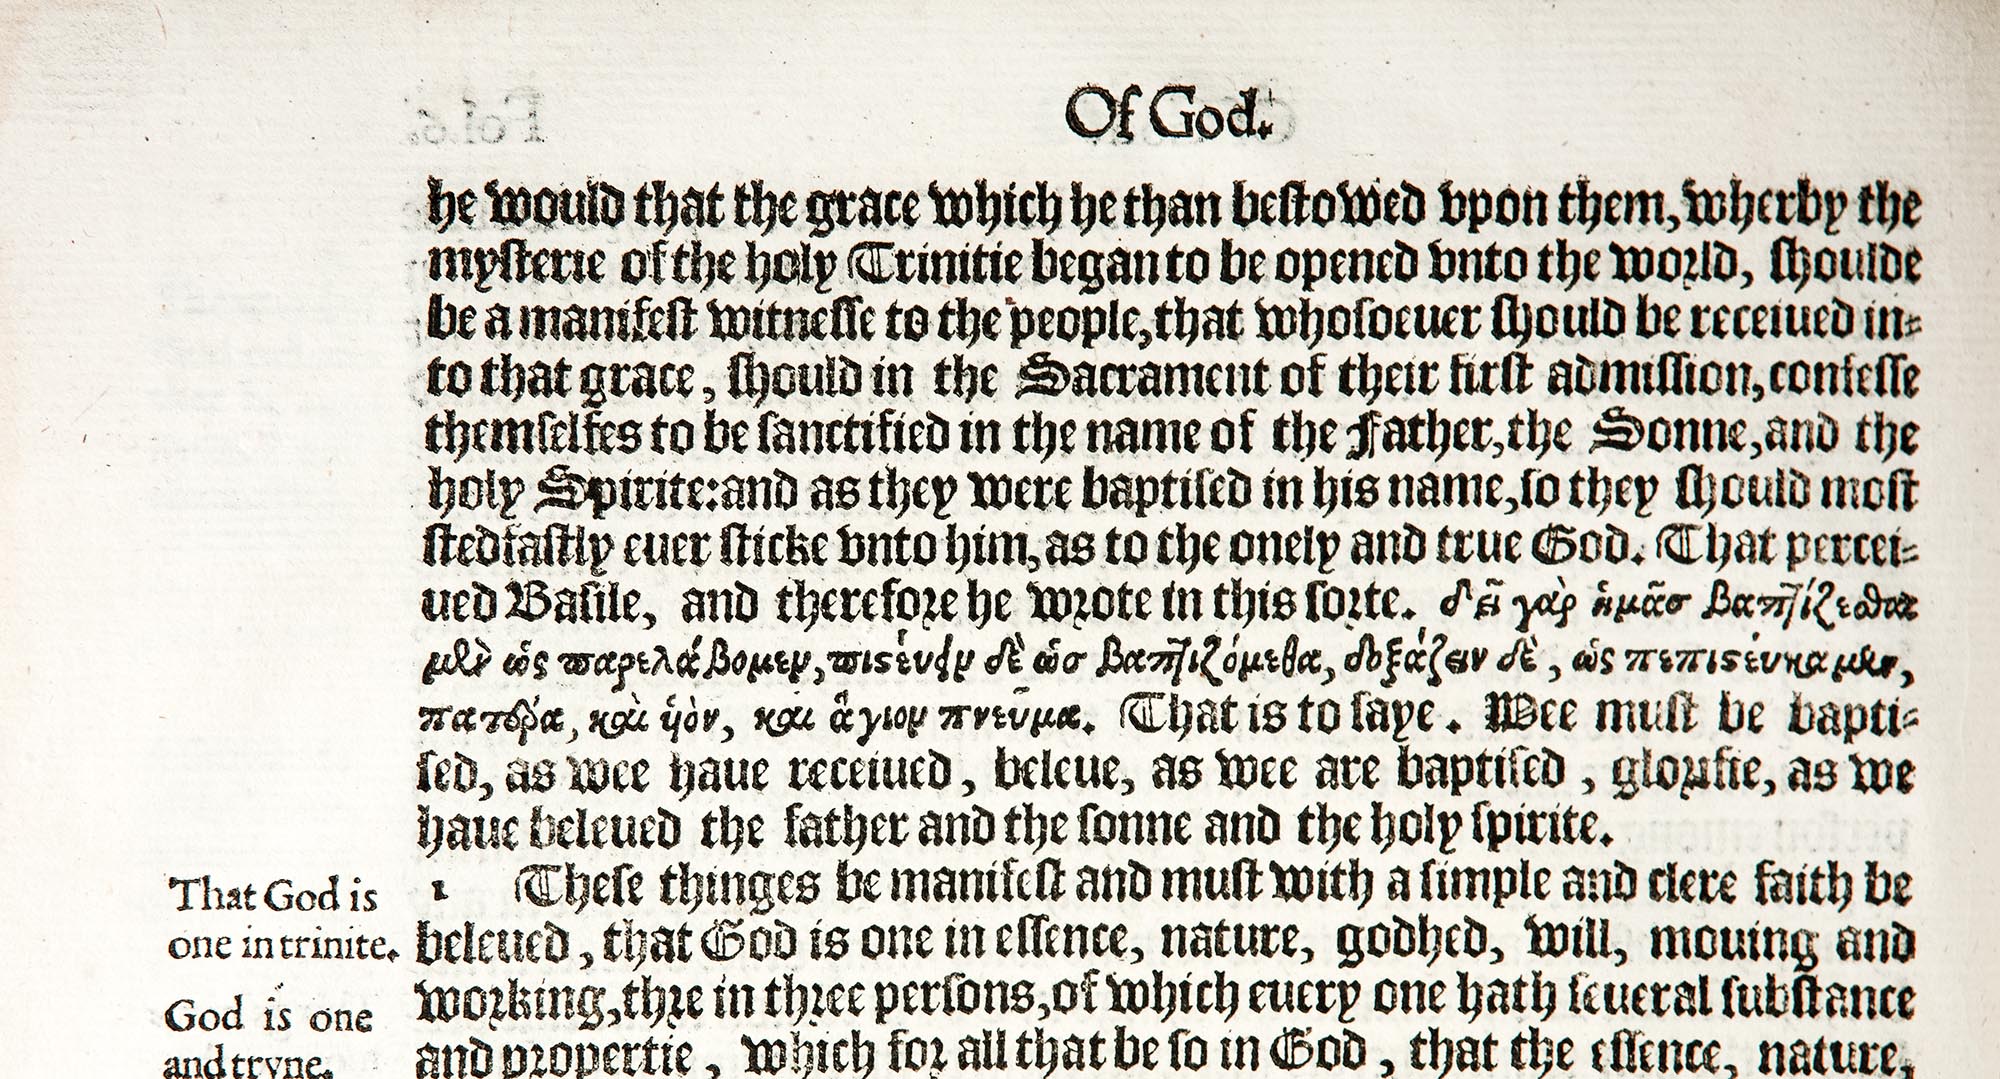 Of God.
he would that the grace which he than bestowed vpon them, wherby the
mysterie of the holy Trinitie began to be opened vnto the world, shoulde
be a manifest witnesse to the people, that whosoeuer should be receiued in-
to that grace, should in the Sacrament of their first admission, confesse
themselfes to be sanctified in the name of the Father, the Sonne, and the
holy Spirite: and as they were baptised in his name, so they should most
stedfastly euer sticke vnto him, as to the onely and true God. That percei-
ued Basile, and therefore he wrote in this sorte. δεῖ γὰρ ἡμᾶσ βαπτίζεσθαι
μὲν ὡς παρελάβομεν, πιστεύειν δὲ ὡσ βαπτιζόμεθα, δοξάζειν δὲ, ὡς πεπιστεύκαμεν,
πατέρα, καὶ ὑὸν, καὶ ἅγιον πνεῦμα. That is to saye. Wee must be bapti-
sed, as wee haue receiued, beleue, as wee are baptised, glorifie, as we
haue beleued the father and the sonne and the holy spirite.
That God is
one in trinite.
1 These thinges be manifest and must with a simple and clere faith be
beleued, that God is one in essence, nature, godhed, will, mouing and
God is one
and tryne.
working, thre in three persons, of which euery one hath seueral substance
and propertie, which for all that be so in God, that the essence, nature,